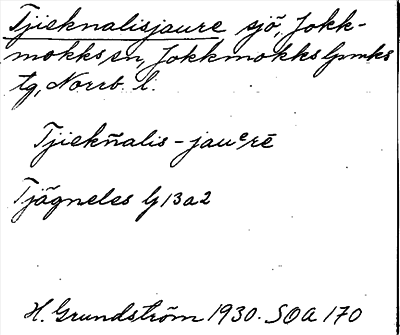 Tjieknalisjaure, sjö, Jokk-
mokks sn, Jokkmokks lpmks
tg, Norrb. l.
Tjiekñalis-jauᵉrē
Tjägneles G13a2
H. Grundström 1930. SOA 170